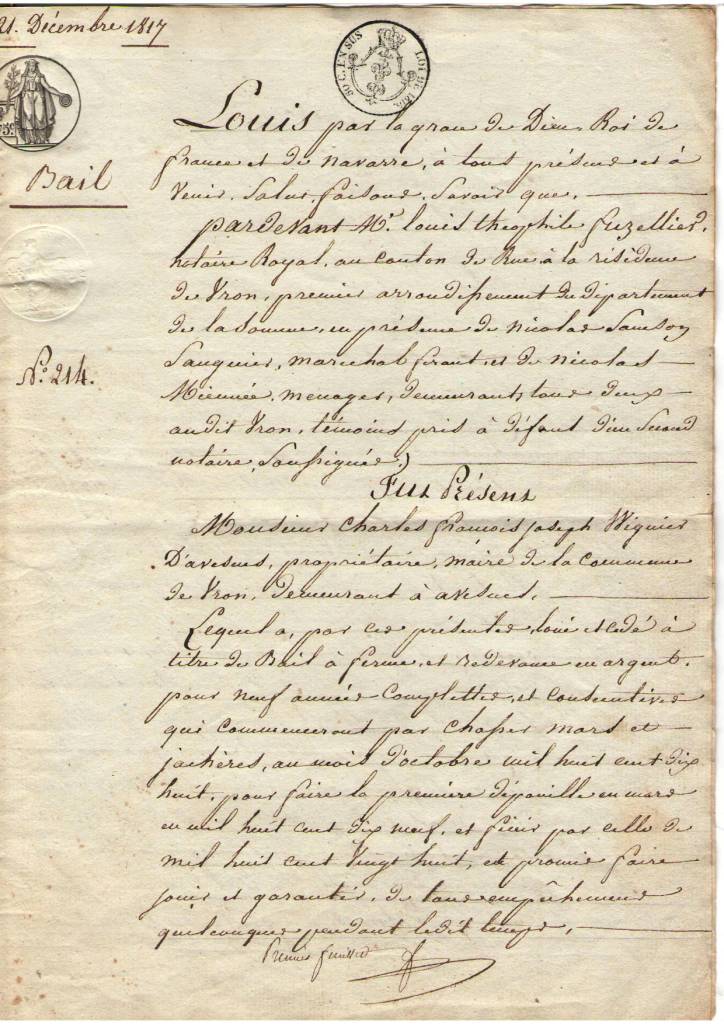 21. Décembre 1817
50 C. EN SUS
LOI DE 1816
Bail
N.° 214.
Louis par la grace de Dieu Roi de
france et de navarre, à tous présens et à
venir. Salut, faisons, Savoir que,
pardevant M.e louis theophile fuzellier,
notaire Royal, au canton de Rue à la résidence
de Vron, premier arrondissement du département
de la Somme, en présence de nicolas Samson
Sauguier, marechal ferant, et de nicolas
Miennée, menager, demeurants tous deux
audit Vron, témoins pris à défaut d'un Second
notaire, Soussignés)
Fut Présent
Monsieur Charles françois joseph Wignier
D'avesnes, propriétaire, maire de la commune
de Vron, demeurant à avesnes,
Lequel a, par ces présentes, loué et cédé à
titre de Bail à ferme, et redevance en argent,
pour neuf années complettes, et consecutives
qui commenceront par chasser mars et
jachères, au mois d'octobre mil huit cent dix
huit, pour faire la première dépouille en mars
en mil huit cent dix neuf, et finir par celle de
mil huit cent vingt huit, et promis faire
jouir et garantir, de tous empêchemens
quelconques pendant ledit temps,